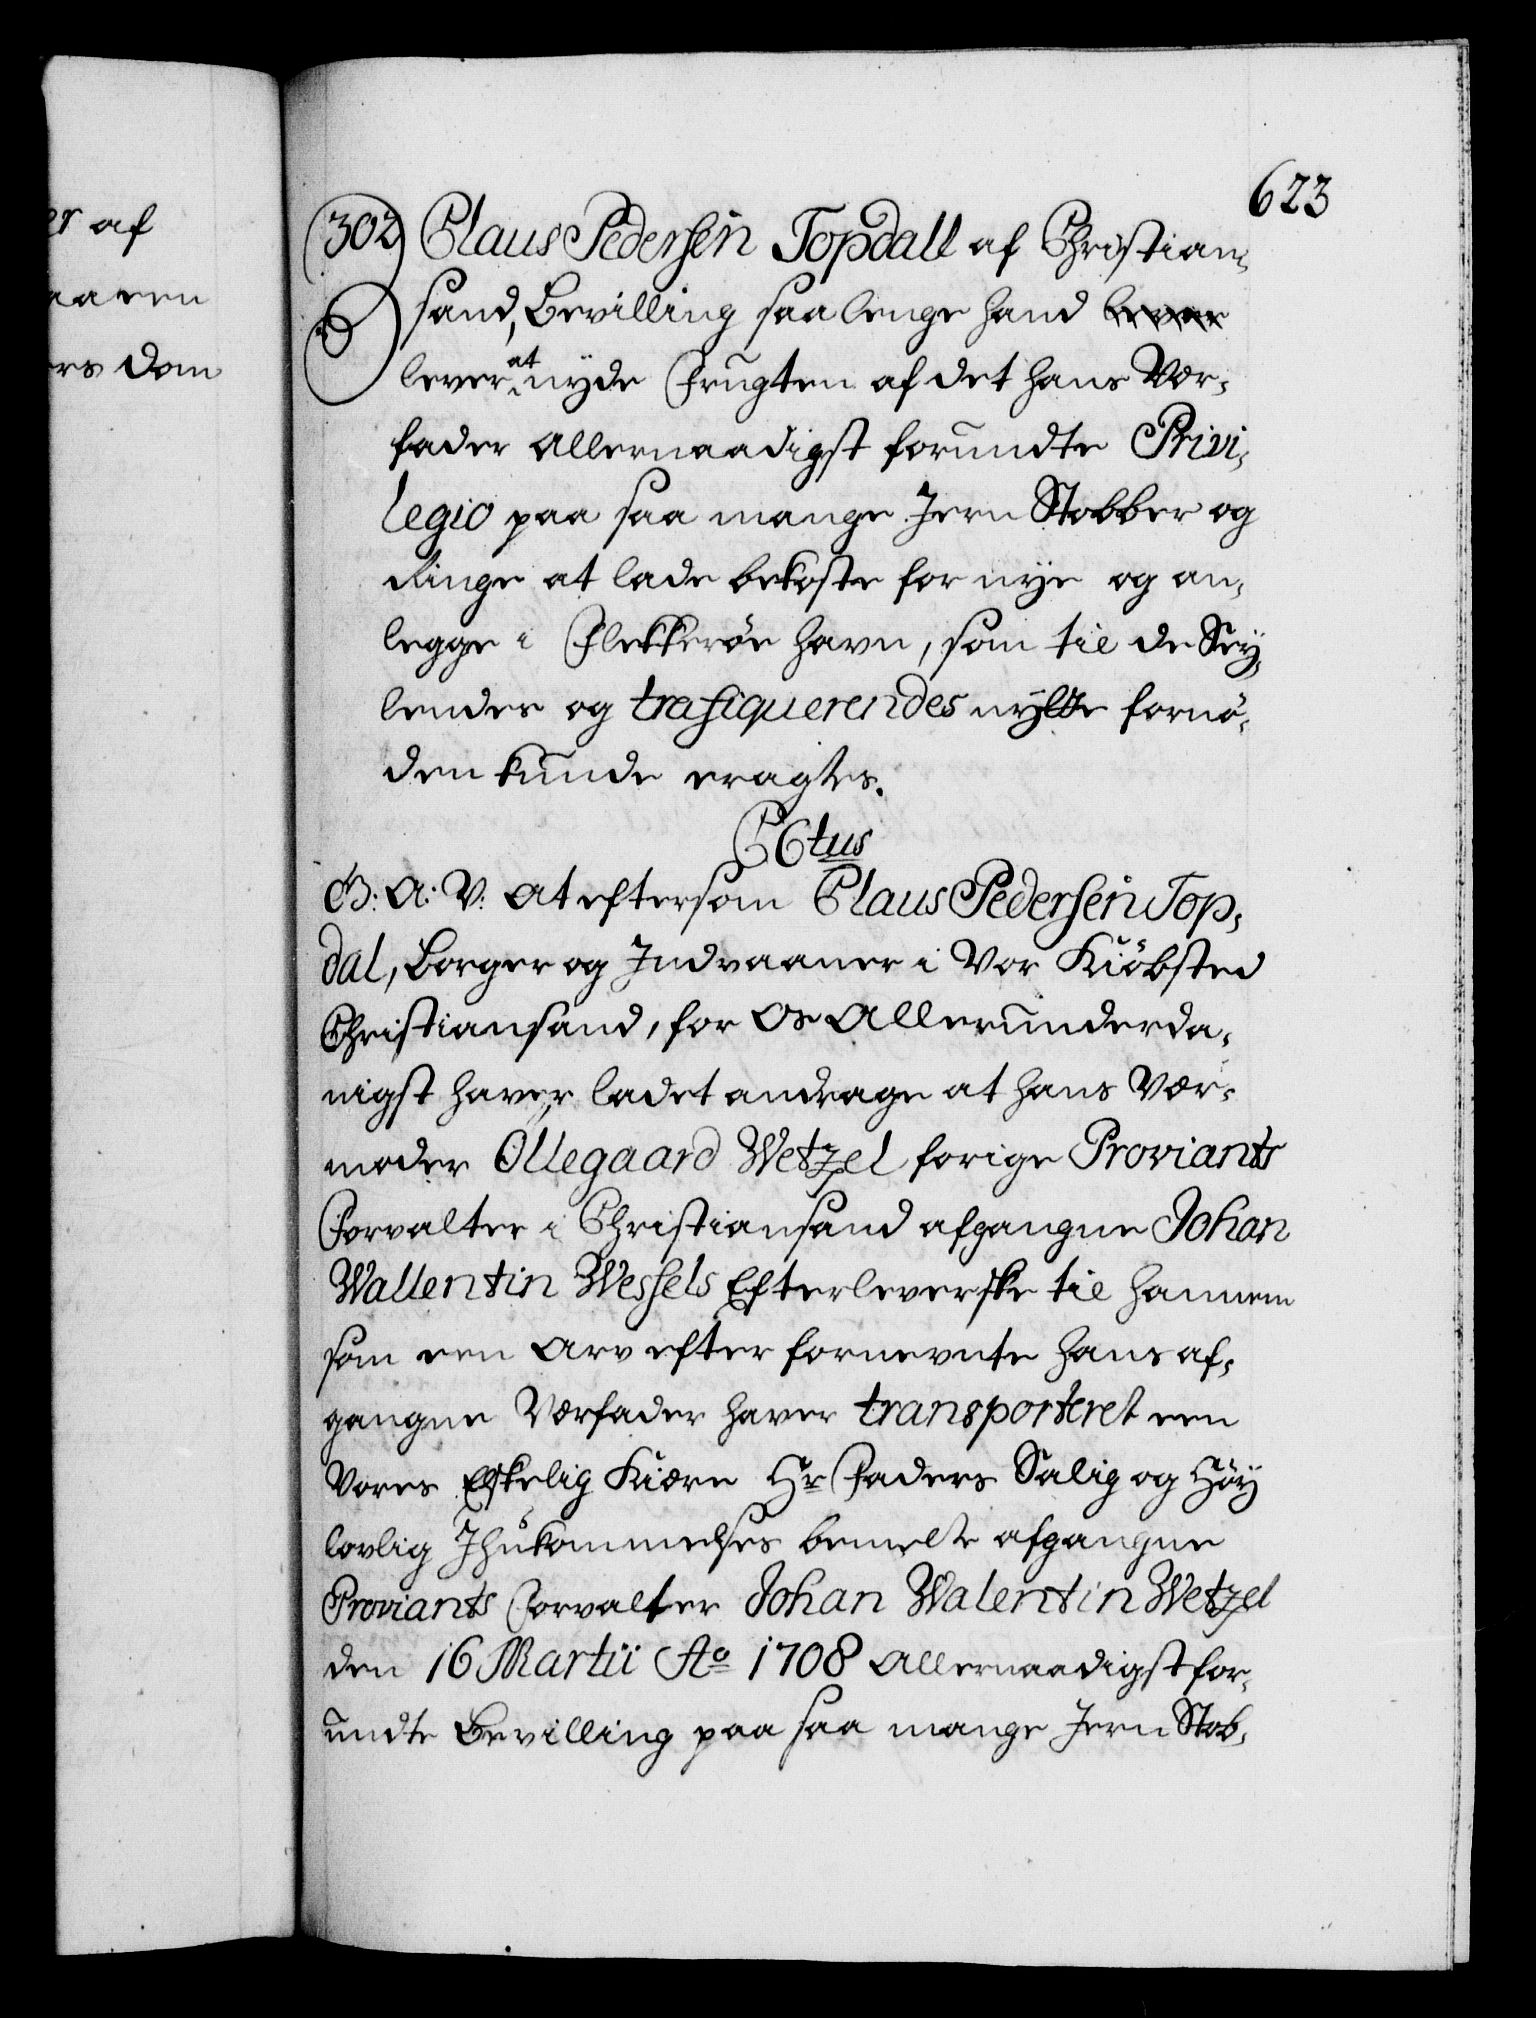 er af
aaren
ers dom
623
302 Claus Pedersen Topdall af Christian-
sand, Bevilling saa lenge hand lever
lever at nyde Frugten af det hans Vær-
fader allernaadigst forundte Privi-
legio paa saa mange Jern Stobber og
Ringe at lade bekoste for nye og an-
legge i Flekkerøe havn, som til de Sey-
lendes og trafiquerendes nytte fornø-
den kunde eragtes.
CCtus
G: A: V: At eftersom Claus Pedersen Top-
dal, Borger og Indvaaner i Vor Kiøbsted
Christiansand, for Os Allerunderda-
nigst haver ladet andrage at hans Vær-
moder Ollegaard Wetzel forige Proviants
Forvalter i Christiansand afgangne Johan
Wallentin Wessels Efterleverske til hannem
som een Arv efter fornevnte hans af-
gangne Værfader haver transporteret een
Vores Elskelig Kiære Hr Faders Salig og Høy
lovlig Ihukommelses bemelte afgangne
Proviants Forvalter Johan Walentin Wetzel
den 16 Martii Ao 1708 Allernaadigst for-
undte Bevilling paa saa mange Jern Stob-